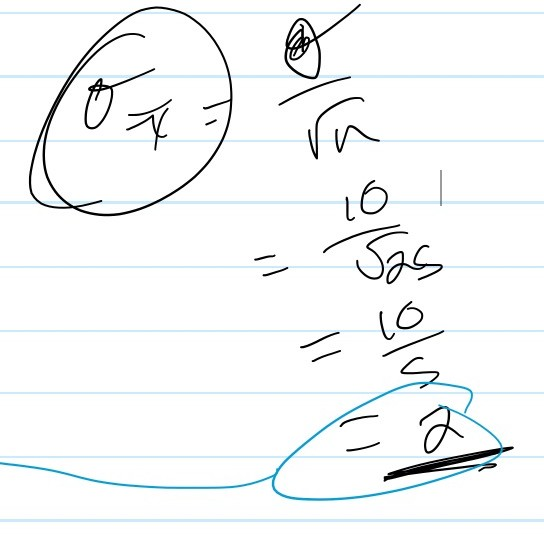 σ_x̄ = σ/√n
= 10/√25
= 10/5
= 2